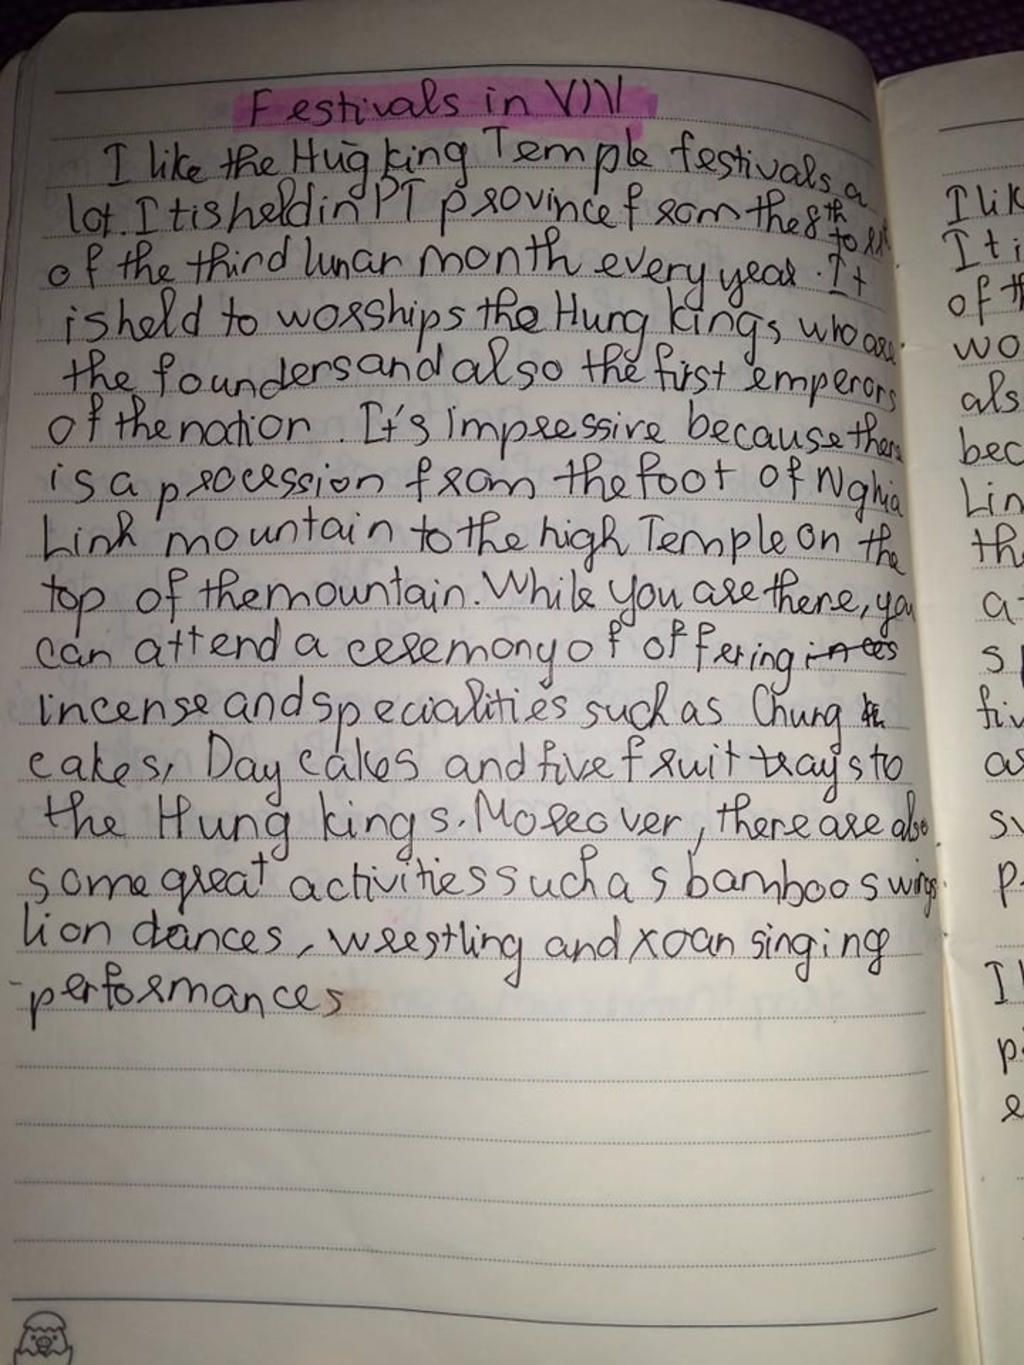 Festivals in VN
I like the Hug king Temple festivals a
lot. It is held in PT province from the 8th to
of the third lunar month every year. It
is held to worships the Hung kings who are
the founders and also the first emperors
of the nation. It's impressive because there
is a procession from the foot of Nghia
Link mountain to the high Temple on the
top of the mountain. While you are there, you
can attend a ceremony of offering
incense and specialities such as Chung
cakes, Day cakes and five fruit trays to
the Hung kings. Moreover, there are also
some great activities such as bamboo swings
lion dances, wrestling and xoan singing
performances
I lik
It i
of th
wo
als
bec
Lin
th
a
s
fiv
as
su
p
I
p
e